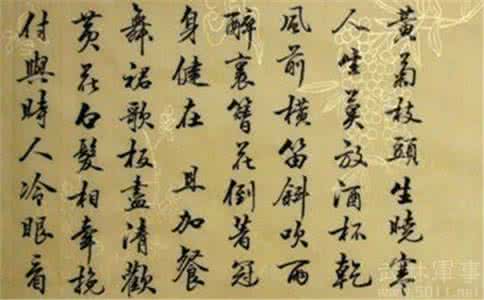 黃菊枝頭生曉寒
人生莫放酒杯乾
風前橫笛斜吹雨
醉裏簪花倒著冠
身健在 且加餐
舞裙歌板盡清歡
黃花白髮相牽挽
付與時人冷眼看